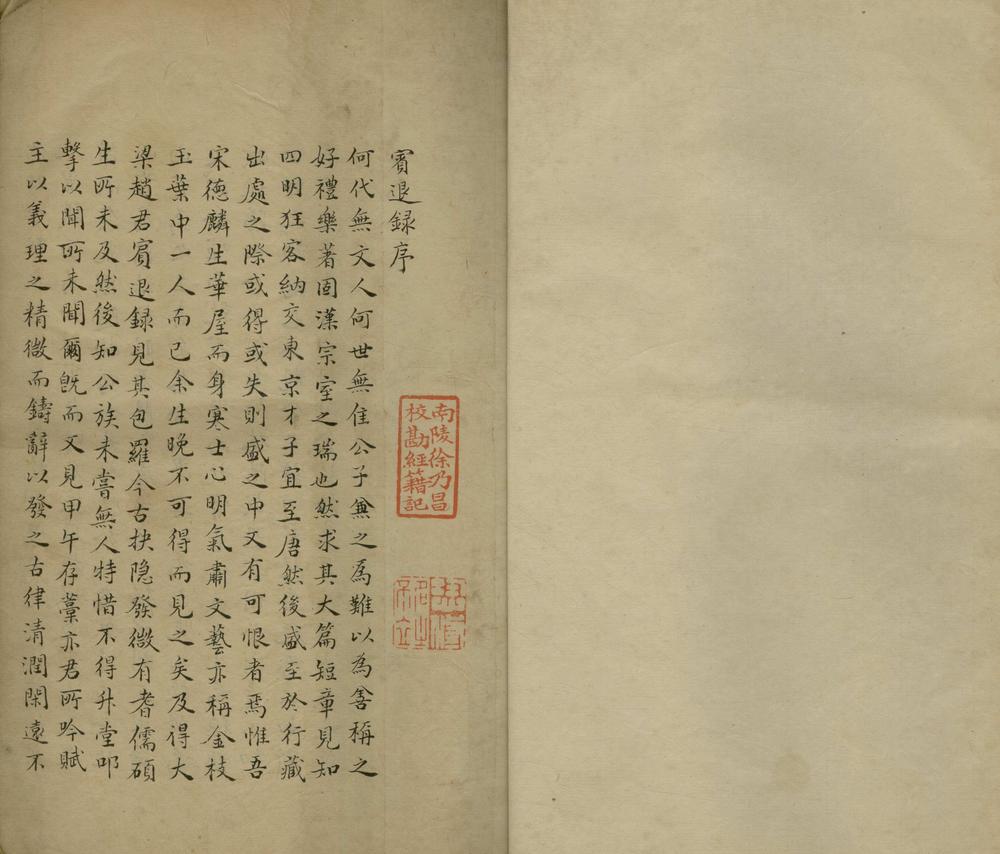 賓退録序
何代無文人何世無佳公子兼之為難以為善稱之
好禮樂著固漢宗室之瑞也然求其大篇短章見知
四明狂客納交東京才子宜至唐然後盛至於行藏
出處之際或得或失則盛之中又有可恨者焉惟吾
宋德麟生華屋而身寒士心明氣肅文藝亦稱金枝
玉葉中一人而已余生晚不可得而見之矣及得大
梁趙君賓退録見其包羅今古抉隐發微有耆儒碩
生所未及然後知公族未嘗無人特惜不得升堂叩
擊以聞所未聞爾既而又見甲午存藁亦君所吟賦
主以義理之精微而鑄辭以發之古律清潤閑遠不
南陵徐乃昌
校勘經籍記